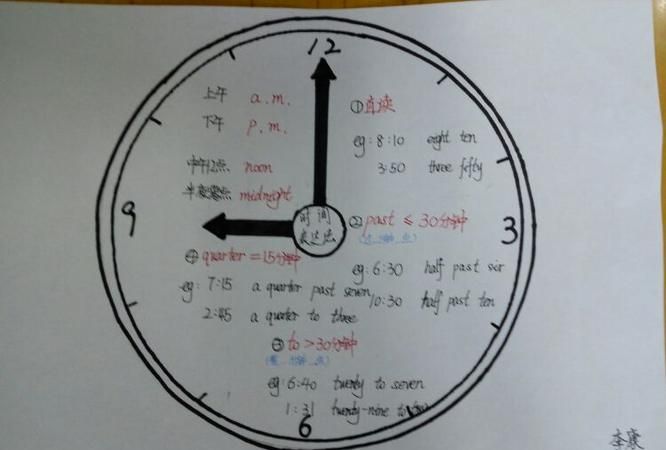 12
上午 a.m.
下午 p.m.
中午12点 noon
半夜零点 midnight
①直读
eg: 8:10 eight ten
3:50 three fifty
9
时间
表达法
3
②past ≤ 30分钟
(过...分钟...点)
eg: 6:30 half past six
10:30 half past ten
④quarter = 15分钟
eg: 7:15 a quarter past seven
2:45 a quarter to three
③to > 30分钟
(差...分钟...点)
eg: 6:40 twenty to seven
1:31 twenty-nine to two
6
李赓